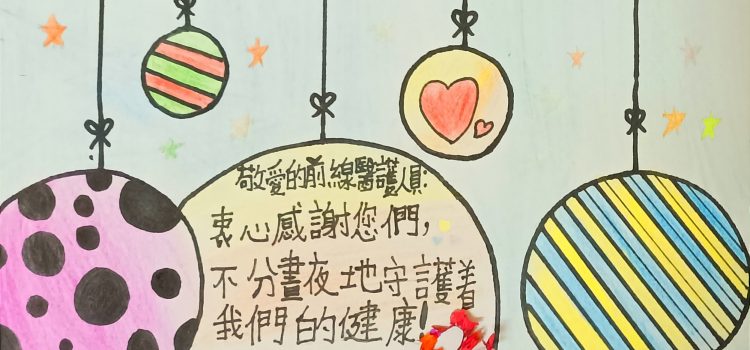 敬愛的前線醫護人員:
衷心感謝您們,
不分晝夜地守護着
我們的健康!